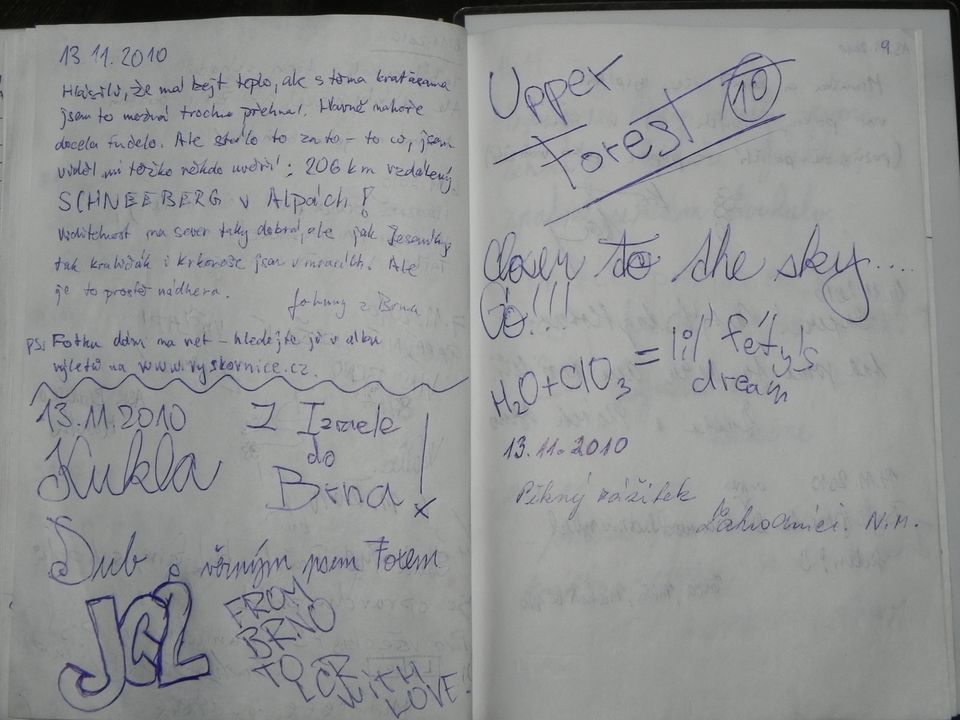 13.11.2010
Hlásilo, že má bejt teplo, ale s těma kraťasama
jsem to možná trochu přehnal. Hlavně nahoře
docela fučelo. Ale stálo to za to - to co, jsem
viděl mi těžko někdo uvěří: 206 km vzdálený
SCHNEEBERG v Alpách!
Viditelnost na sever taky dobrá, ale jak Jeseníky,
tak Kraličák i Krkonoše jsou v mracích. Ale
je to prostě nádhera.
Johnny z Brna
PS: Fotku dám na net - hledejte ji v albu
výletů na www.vyskovnice.cz.
13.11.2010
Kukla
Z Izraele
do
Brna!
Dub a věrným psem Forem
FROM
BRNO
TO
WITH
LOVE!
9
Upper
Forest 10
closer to the sky....
Gó!!!
H2O+ClO3 = lil' féťy's
dream
13.11.2010
Pěkný zážitek
N.M.